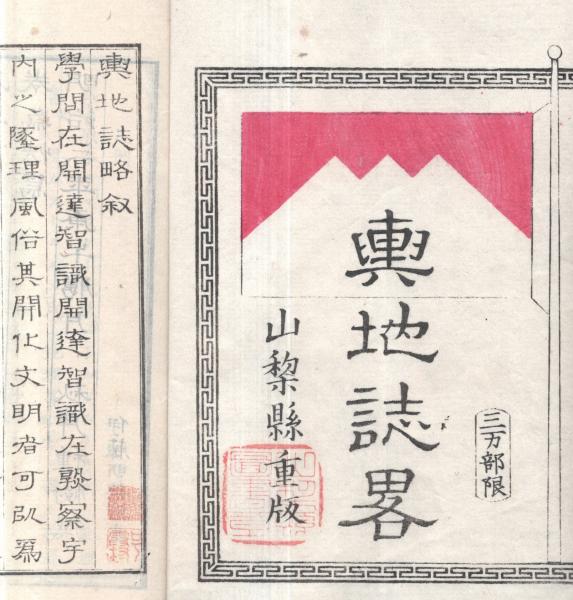 三万部限
輿地誌畧
山梨縣重版
輿地誌略叙
學問在開達智識開達智識在察宇
内之理風俗其開化文明者可以爲